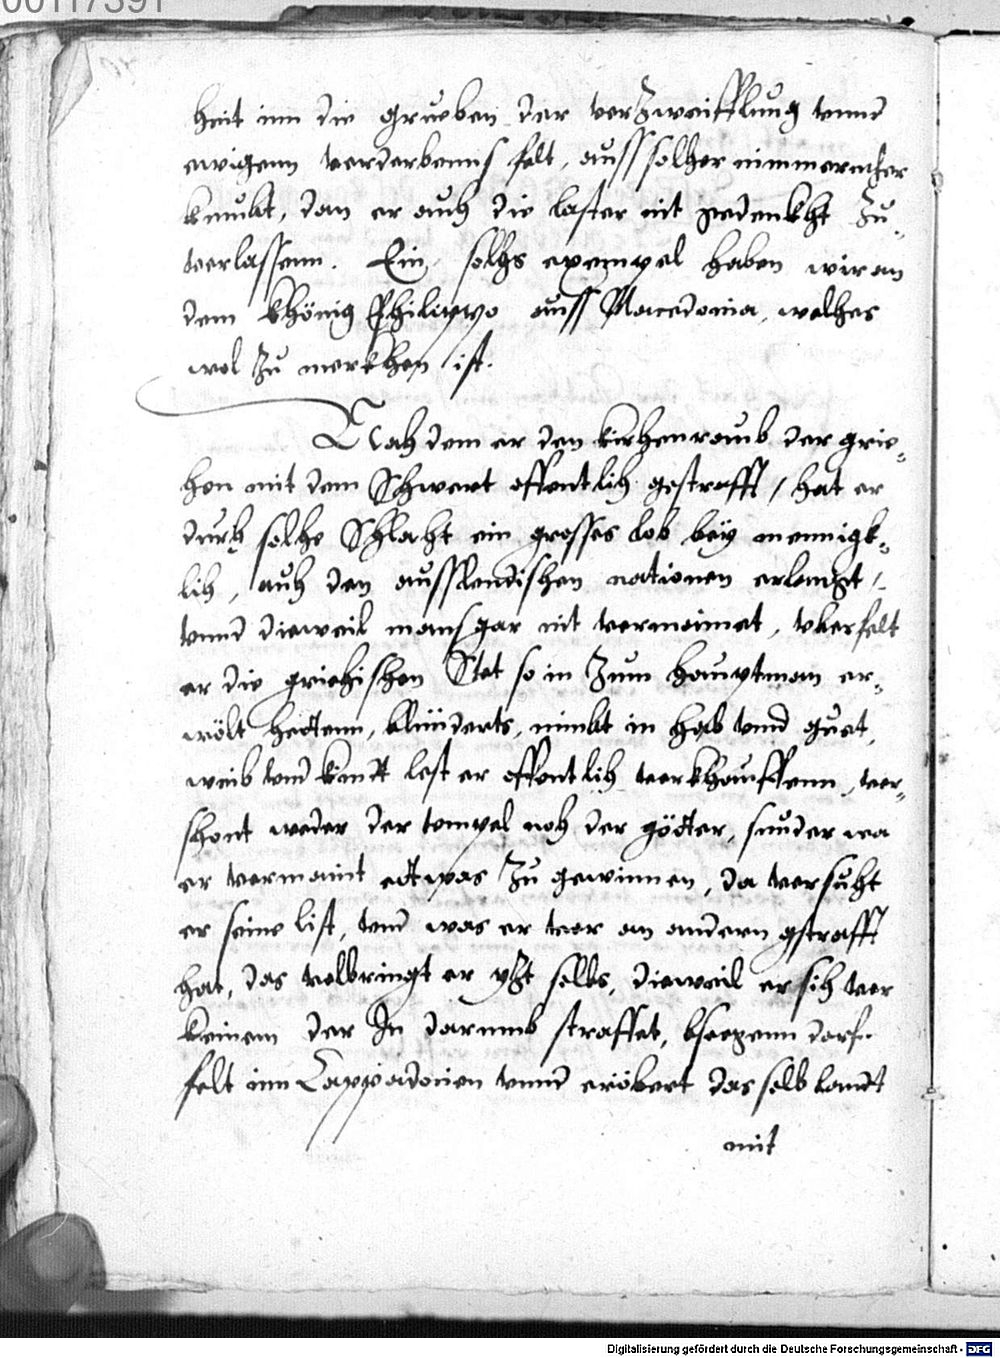 00117391
heit inn die grueben der verzweifflung vnnd
ewigenn verderbenns felt, auss solher nimmermher
khumbt, dan er auch die laster nit gedenkht zu-
verlassenn. Ein solhs exempel haben wir an
dem khönig Philippo auss Macedonia, welhes
wol zu merkhen ist.
Nach dem er den kirhenraub der grie-
hen mit dem Schwert offentlih gestrafft, hat er
durh solhe Schlaht ein grosses lob bey mennigk-
lih, auh den ausslendishen nationen erlangt,
vnnd dieweil mans gar nit vermeinet, vberfelt
er die griehishen Stet so in zum hauptman er-
wölt hettenn, blünderts, nimbt in hab vnnd guet,
weib vnd kindt lest er offentlih verkhauffenn, ver-
shont weder der tempel noh der götter, sunder wa
er vermaint ettwas zu gewinnen, da versuht
er seine list, vnd was er vor an andern gstrafft
hat, das volbringt er yzt selbs, dieweil er sih vor
keinem der In darumb straffet, bsorgenn dorf.
felt inn Cappadocien vnnd eröbert das selb landt
mit
Digitalisierung gefördert durch die Deutsche Forschungsgemeinschaft - DFG